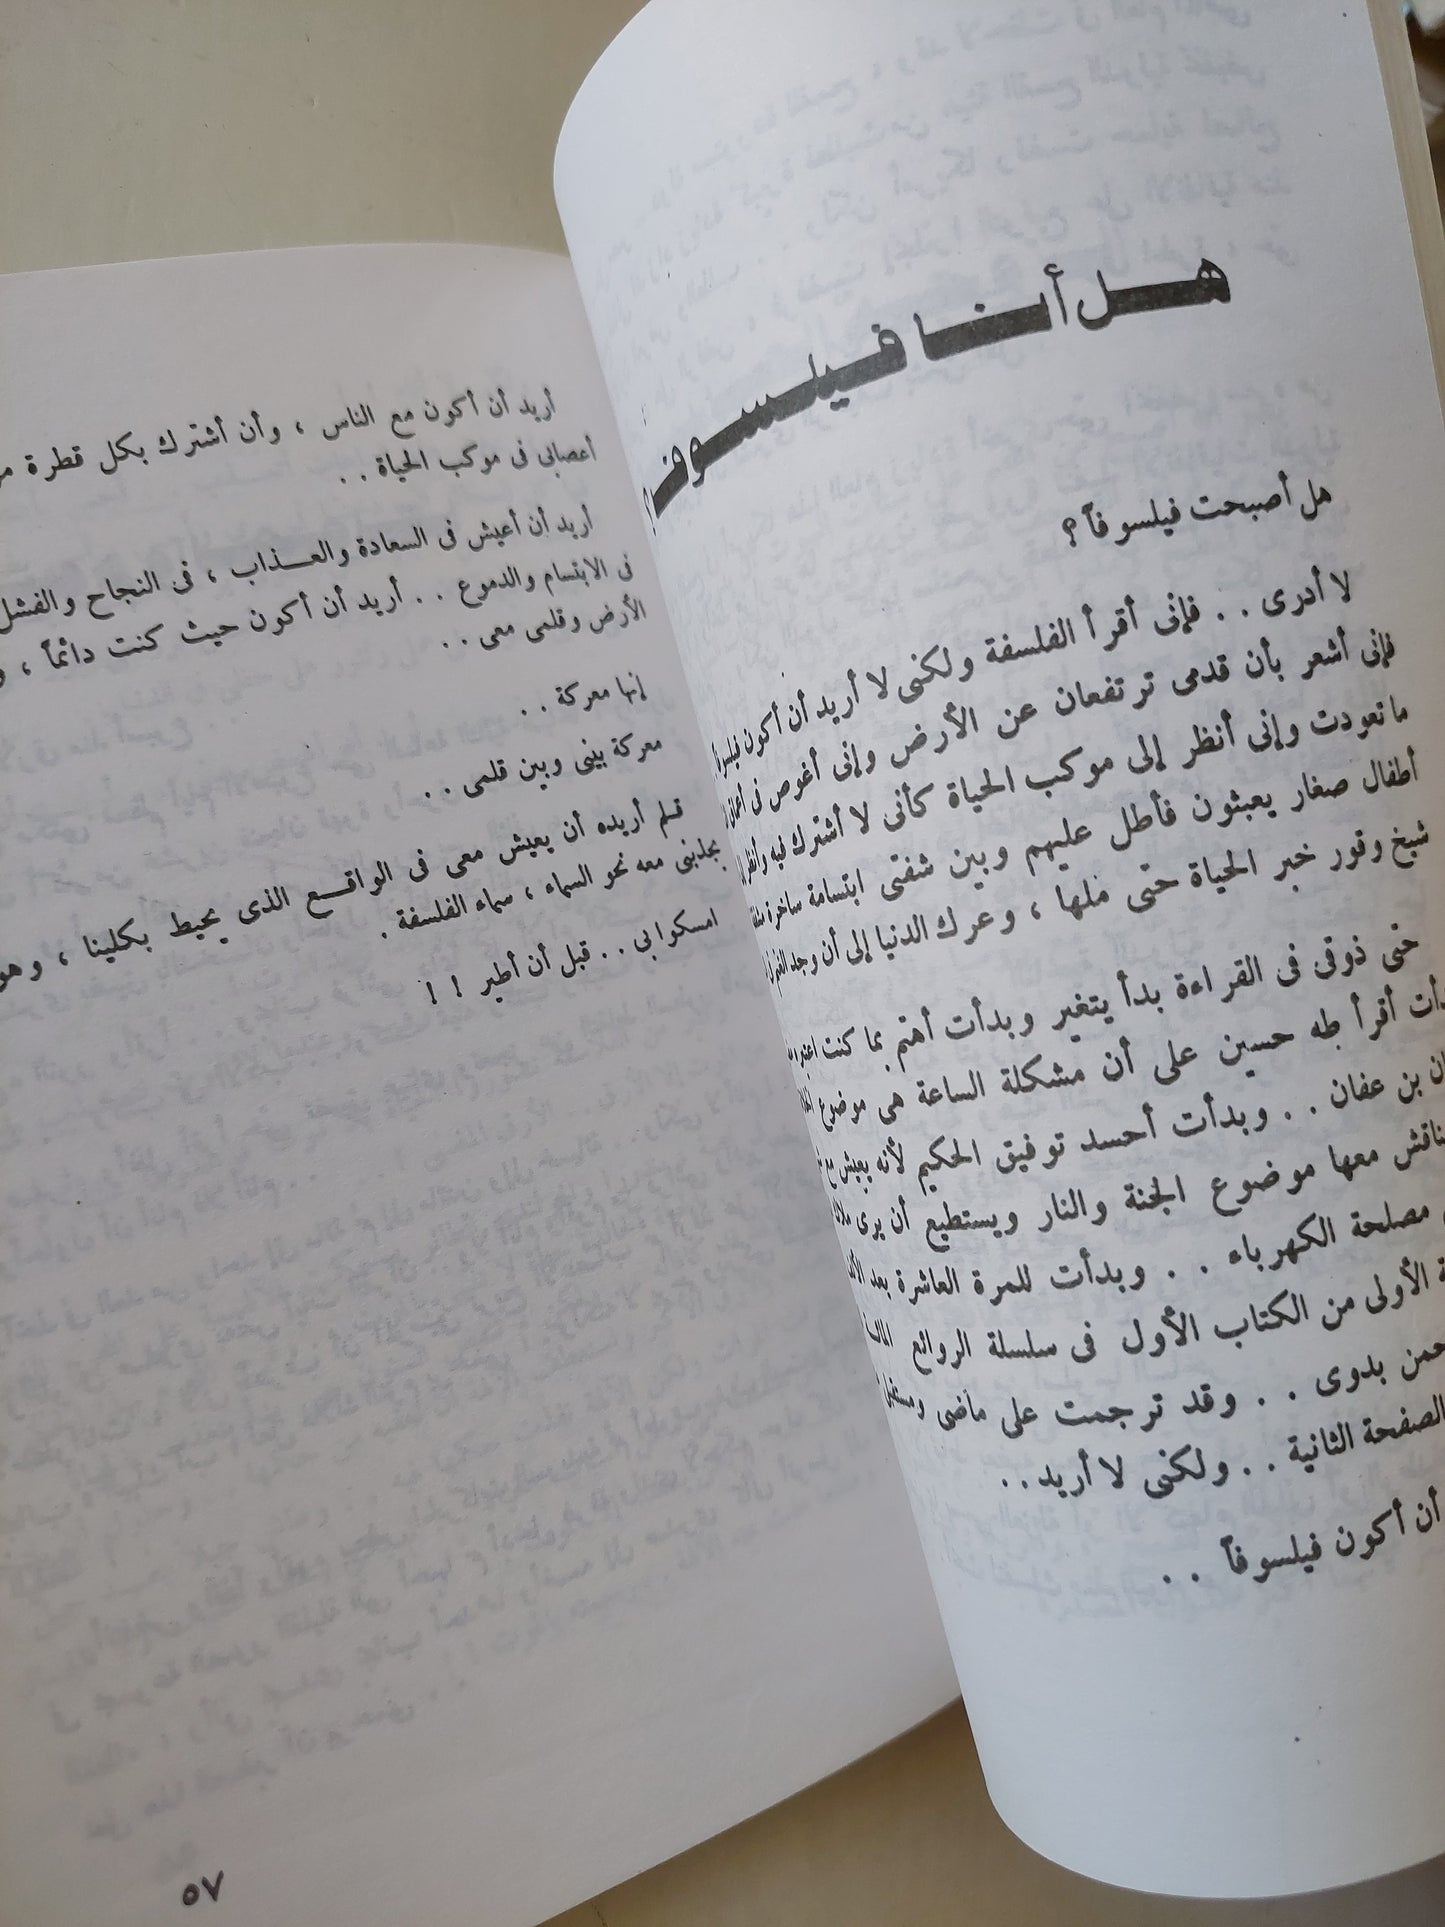 هل أنا فيلسوف؟
هل أصبحت فيلسوفاً ؟
لا أدرى . . فإنى أقرأ الفلسفة ولكنى لا أريد أن أكون فيلسوفا
فإنى أشعر بأن قدمى ترتفعان عن الأرض وإنى أغوص فى أعماق
ما تعودت وإنى أنظر إلى موكب الحياة كأنى لا أشترك فيه وأنظر
أطفال صغار يعبثون فأطل عليهم وبين شفتى ابتسامة ساخرة
شيخ وقور خبر الحياة حتى ملها ، وعرك الدنيا إلى أن وجد
حتى ذوقى فى القراءة بدأ يتغير وبدأت أهتم بما كنت اعتبره
أقرأ طه حسين على أن مشكلة الساعة هى موضوع
بن عفان . . وبدأت أحسد توفيق الحكيم لأنه يعيش مع
معها موضوع الجنة والنار ويستطيع أن يرى
مصلحة الكهرباء . . وبدأت للمرة العاشرة بعد
الأولى من الكتاب الأول فى سلسلة الروائع
بدوى . . وقد ترجمت على ماضى ومستقبل
الصفحة الثانية . . ولكنى لا أريد . .
أن أكون فيلسوفاً . .
أريد أن أكون مع الناس ، وأن أشترك بكل قطرة
أعصابى فى موكب الحياة . .
أريد أن أعيش فى السعادة والعـذاب ، فى النجاح والفشل
فى الابتسام والدموع . . أريد أن أكون حيث كنت دائماً ،
الأرض وقلمى معى . .
إنها معركة . .
معركة بينى وبين قلمى . .
قلم أريده أن يعيش معى فى الواقـع الذى يحيط بكلينا ، وهو
يجذبنى معه نحو السماء ، سماء الفلسفة .
امسكوا بى . . قبل أن أطير ! !
٥٧